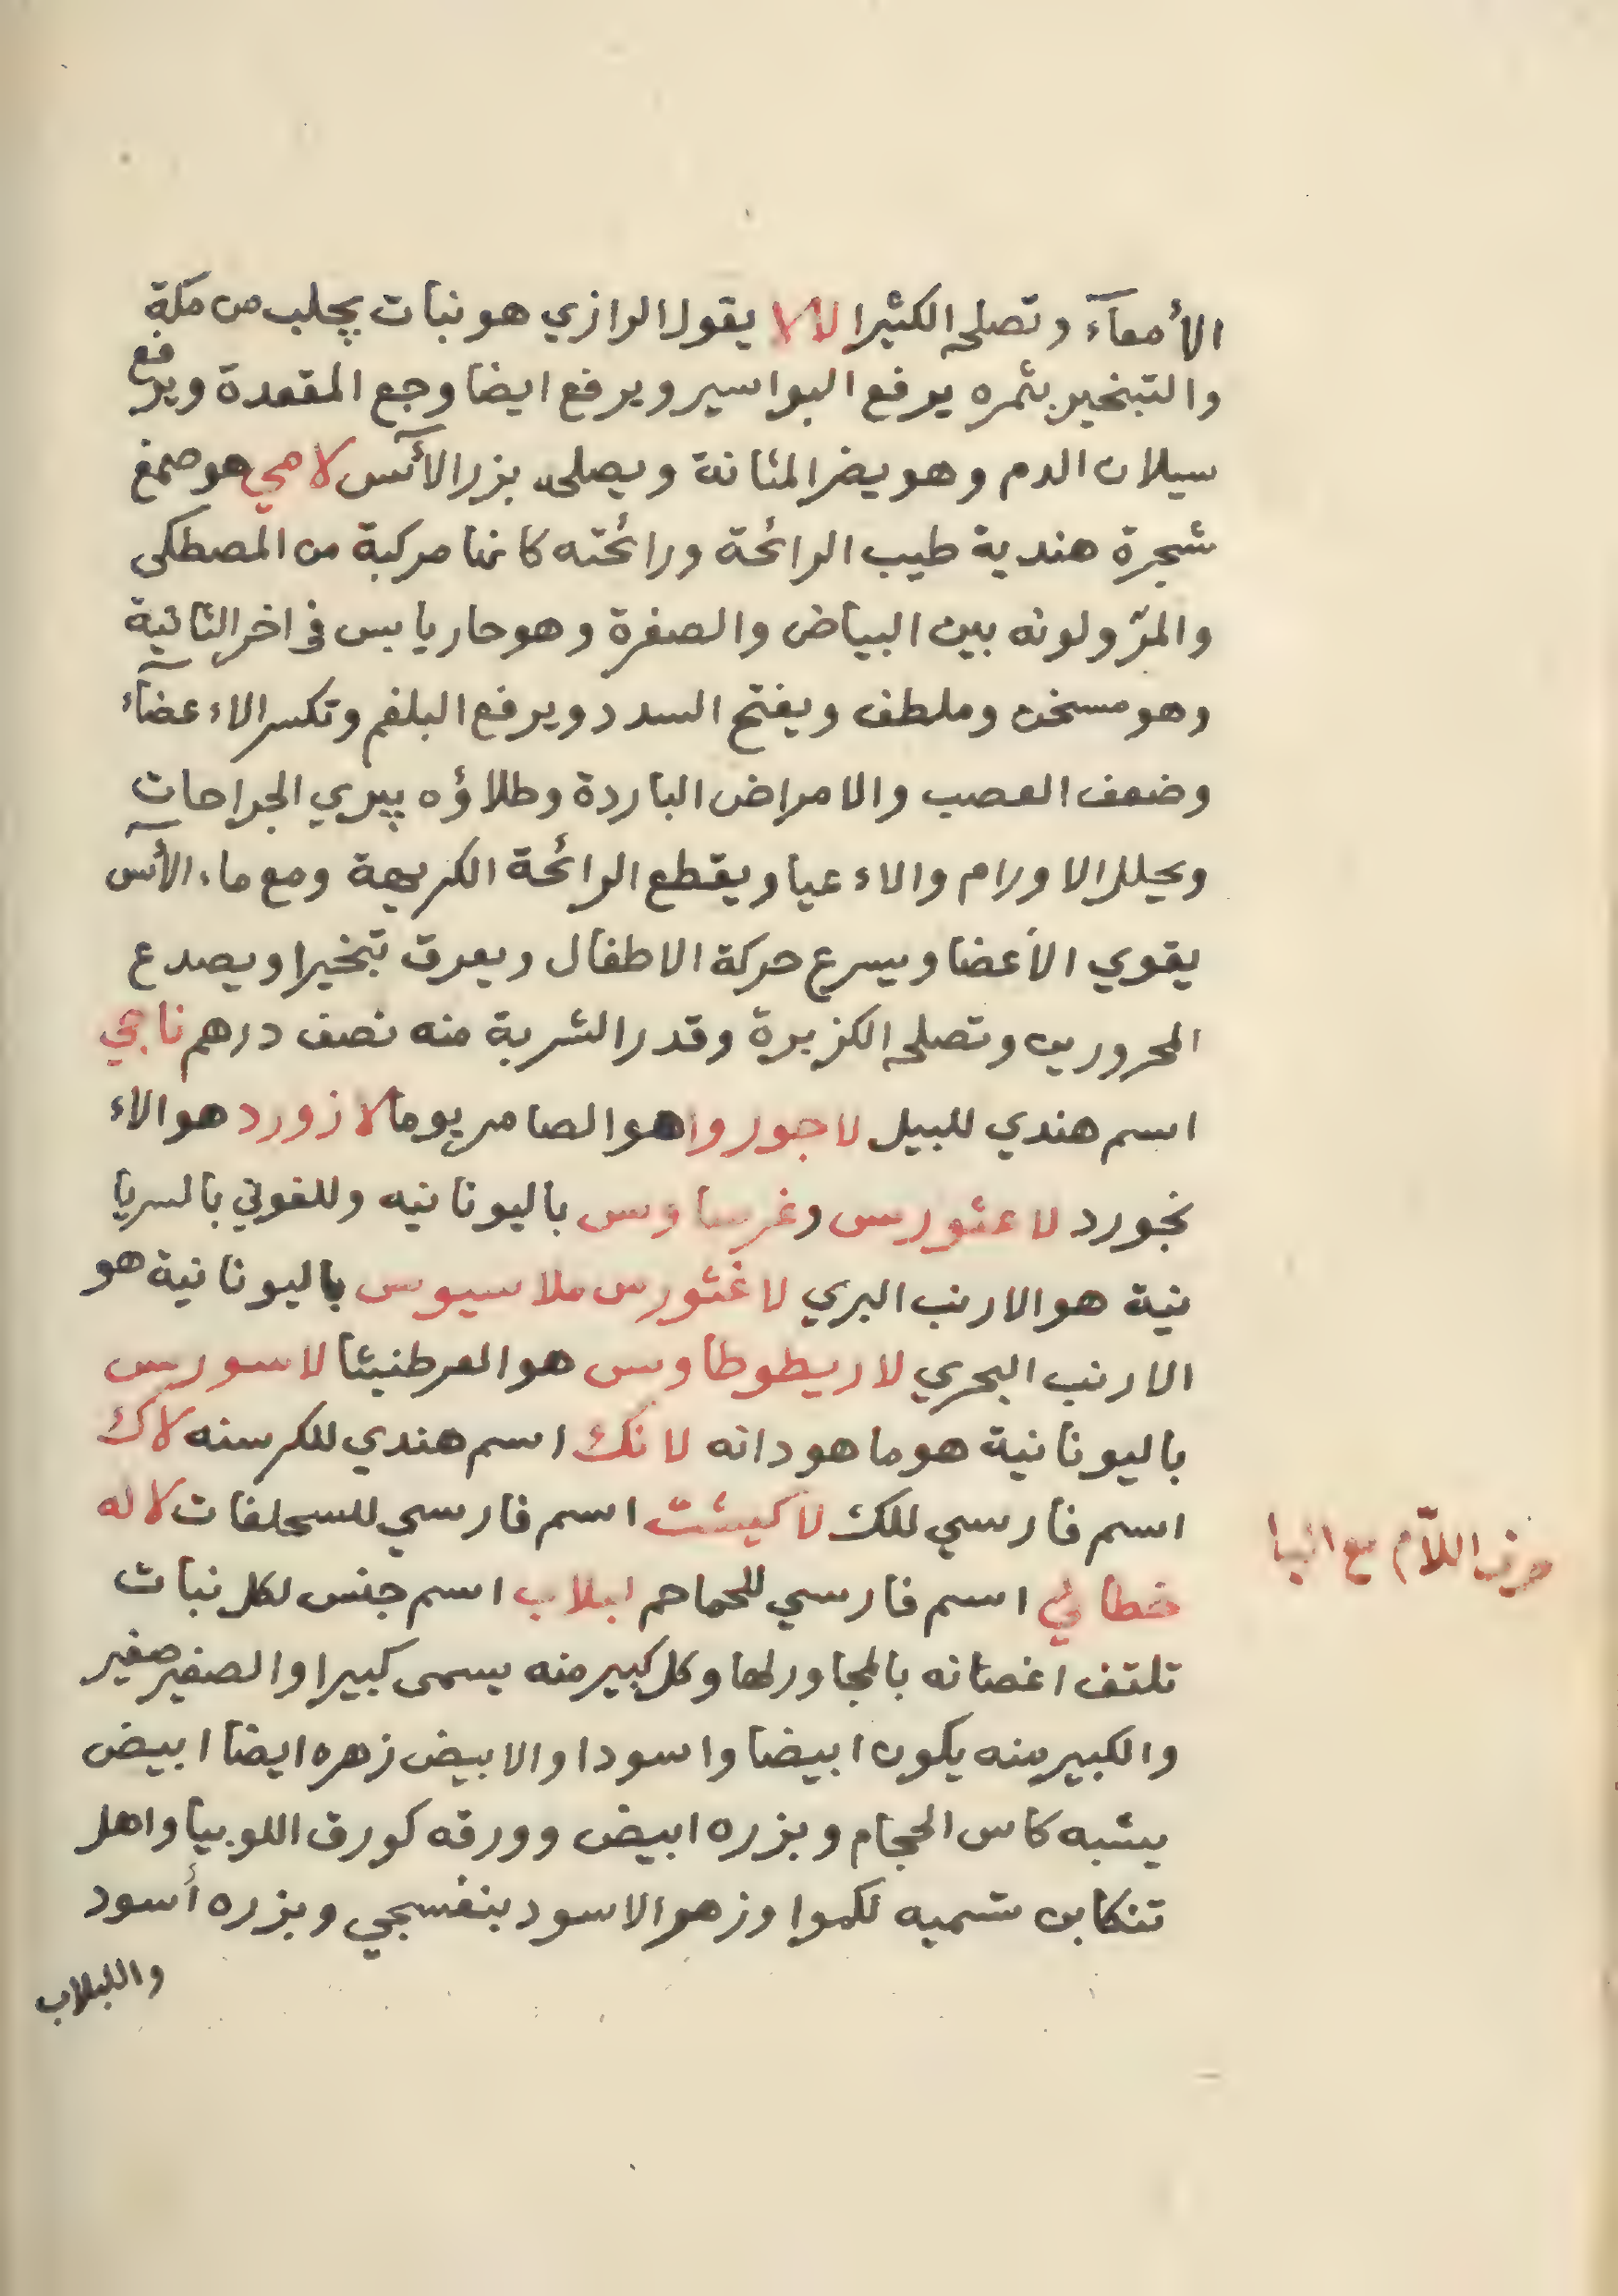 الأمعآء وتصلحه الكثيرا لالا يقول الرازي هو نبات يجلب من مكة
والتبخير بثمره يرفع البواسير ويرفع ايضا وجع المقعدة ويرفع
سيلان الدم وهو يضر المثانة ويصلحه بزر الآس لامي هو صمغ
شجرة هندية طيب الرائحة ورائحته كانما مركبة من المصطكى
والمرّ ولونه بين البياض والصفرة وهو حار يابس في اخر الثانية
وهو مسخن وملطف ويفتح السدد ويرفع البلغم وتكسر الاءعضآء
وضعف العصب والامراض الباردة وطلاؤه يبري الجراحات
ويحلل الاورام والاءعيا ويقطع الرائحة الكريهة ومع ماء الآس
يقوي الأعضا ويسرع حركة الاطفال ويعرق تبخيرا ويصدع
المحرورين وتصلحه الكزبرة وقدر الشربة منه نصف درهم ناجي
اسم هندي للبيل لاجوروا هو الصامر يوما لازورد هو الاء
نجورد لاعثورس وغرساوس باليونانيه وللغوني بالسريا
نية هو الارنب البري لاغثورس ملاسيوس باليونانية هو
الارنب البحري لاريطوطاوس هو العرطنيثا لاسورس
باليونانية هو ماهودانه لانك اسم هندي للكرسنه لاك
اسم فارسي للك لاكيشت اسم فارسي للسحلفات لاله
خطائي اسم فارسي للحماحم لبلاب اسم جنس لكل نبات
تلتف اغصانه بالمجاور لها وكل كبير منه يسمى كبيرا والصغير صغير
والكبير منه يكون ابيضا واسودا والابيض زهره ايضا ابيض
يشبه كاس الحجام وبزره ابيض وورقه كورق اللوبيا واهل
تنكابن تسميه لكموا وزهر الاسود بنفسجي وبزره أسود
واللبلاب
حرف اللاّم مع البا